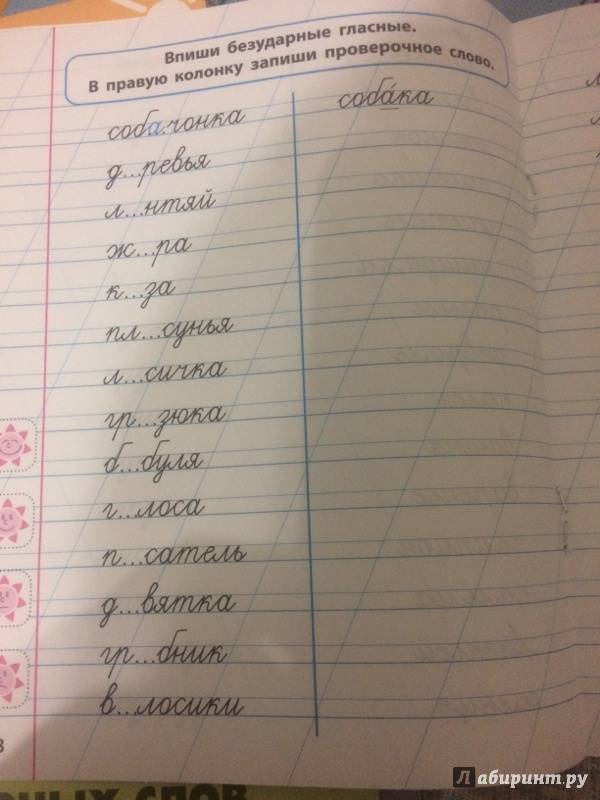 Впиши безударные гласные.
В правую колонку запиши проверочное слово.
собачонка собáка
д...ревья
л...нтяй
ж...ра
к...за
пл...сунья
л...сичка
гр...зюка
б...буля
г...лоса
п...сатель
д...вятка
гр...бник
в...лосики
8
Лабиринт.ру